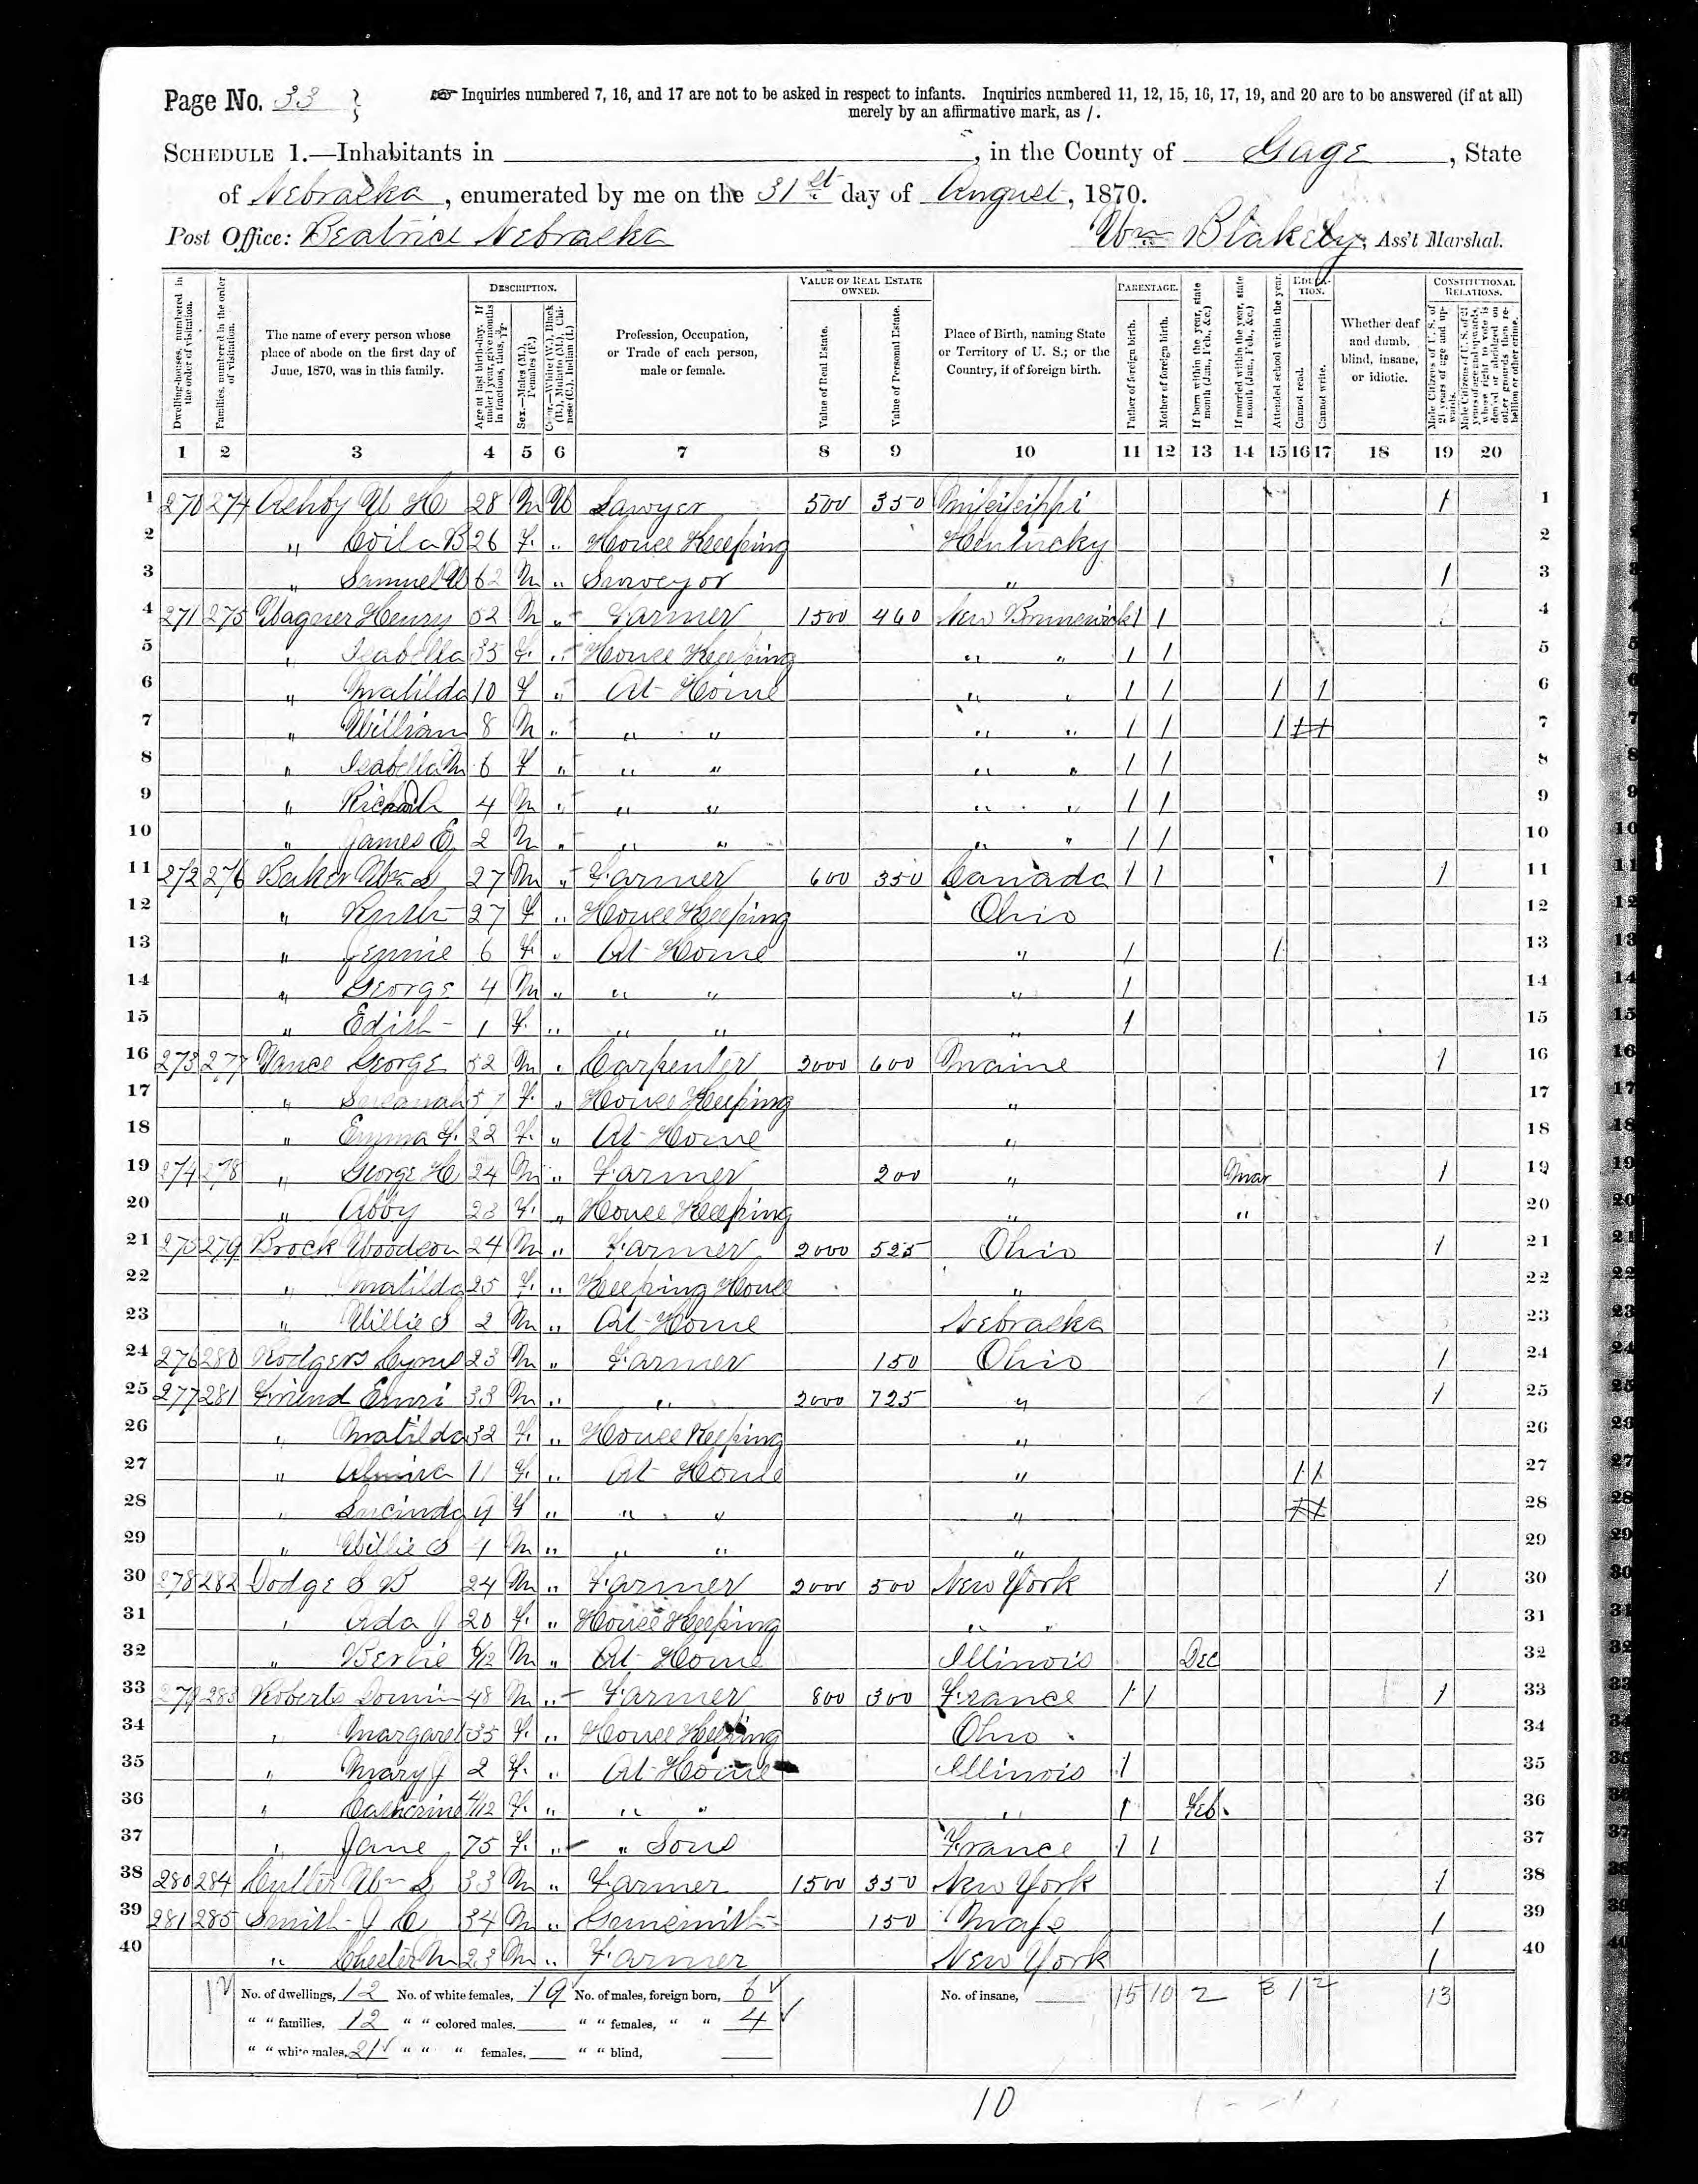 Page No. 33
Inquiries numbered 7, 16, and 17 are not to be asked in respect to infants. Inquiries numbered 11, 12, 15, 16, 17, 19, and 20 are to be answered (if at all)
merely by an affirmative mark, as /.
SCHEDULE 1.—Inhabitants in , in the County of Gage, State
of Nebraska, enumerated by me on the 31st day of August, 1870.
Post Office: Beatrice Nebraska
Wm Blakely, Ass't Marshal.
Dwelling-houses, numbered in the order of visitation.
Families, numbered in the order of visitation.
The name of every person whose place of abode on the first day of June, 1870, was in this family.
DESCRIPTION.
Age at last birth-day. If under 1 year, give months in fractions, thus, 3/12.
Sex.—Males (M.), Females (F.)
Color.—White (W.), Black (B.), Mulatto (M.), Chinese (C.), Indian (I.)
Profession, Occupation, or Trade of each person, male or female.
VALUE OF REAL ESTATE OWNED.
Value of Real Estate.
Value of Personal Estate.
Place of Birth, naming State or Territory of U. S.; or the Country, if of foreign birth.
PARENTAGE.
Father of foreign birth.
Mother of foreign birth.
If born within the year, state month (Jan., Feb., &c.)
If married within the year, state month (Jan., Feb., &c.)
Attended school within the year.
EDUCATION.
Cannot read.
Cannot write.
Whether deaf and dumb, blind, insane, or idiotic.
CONSTITUTIONAL RELATIONS.
Male Citizens of U. S. of 21 years of age and upwards.
Male Citizens of U. S. of 21 years of age and upwards, whose right to vote is denied or abridged on other grounds than rebellion or other crime.
1 2 3 4 5 6 7 8 9 10 11 12 13 14 15 16 17 18 19 20
1 270 274 Ashby W H 28 M W Lawyer 500 350 Mississippi / 1
2 " B 26 F. " House Keeping Kentucky 2
3 " Samuel W 62 M " Surveyor " / 3
4 271 275 Wagner Henry 52 M " Farmer 1500 460 New Brunswick / / 4
5 " Isabella 35 F. " House Keeping " " / / 5
6 " Matilda 10 F " At Home " " / / / / 6
7 " William 8 M " " " " " / / / / / 7
8 " Isabella M 6 F " " " " " / / 8
9 " Richard 4 M " " " " " / / 9
10 " James E 2 M " " " " " / / 10
11 272 276 Baker Wm S 27 M " Farmer 600 350 Canada / / / 11
12 " Ruth 27 F " House Keeping Ohio 12
13 " Jennie 6 F. " At Home " / / 13
14 " George 4 M " " " " / 14
15 " Edith 1 F. " " " " / 15
16 273 277 Vance George 52 M " Carpenter 3000 600 Maine / 16
17 " Susanah 57 F. " House Keeping " 17
18 " Emma F. 22 F. " At Home " 18
19 274 278 " George H 24 M " Farmer 200 " Mar / 19
20 " Abby 23 F. " House Keeping " " 20
21 275 279 Brock Woodson 24 M " Farmer 2000 525 Ohio / 21
22 " Matilda 25 F. " Keeping House " 22
23 " Willie S 2 M " At Home Nebraska 23
24 276 280 Rodgers Cyrus 23 M " Farmer 150 Ohio / 24
25 277 281 Friend Emri 33 M " " 2000 725 " / 25
26 " Matilda 32 F. " House Keeping " 26
27 " Almira 11 F. " At Home " / / 27
28 " Lucinda 9 F " " " " / / 28
29 " Willie S M " " " " 29
30 278 282 Dodge S B 24 M " Farmer 2000 500 New York / 30
31 " Ada J 20 F. " House Keeping " " 31
32 " Bertie 6/12 M " At Home Illinois Dec 32
33 279 283 Roberts 48 M " Farmer 800 300 France / / / 33
34 " Margaret 35 F. " House Keeping Ohio 34
35 " Mary J 2 F. " At Home Illinois / 35
36 " Catherine 4/12 F. " " " " / Feb. 36
37 " Jane 75 F. " " Sons France / / 37
38 280 284 Cutler Wm S 33 M " Farmer 1500 350 New York / 38
39 281 285 Smith J C 34 M " Gunsmith 150 Mass / 39
40 " Chester M 23 M " Farmer New York / 40
No. of dwellings, 12 No. of white females, 19 No. of males, foreign born, 6 No. of insane, 15 10 2 3 1 2 13
" " families, 12 " " colored males, " " females, " " 4
" " white males, 21 " " " females, " " blind,
10